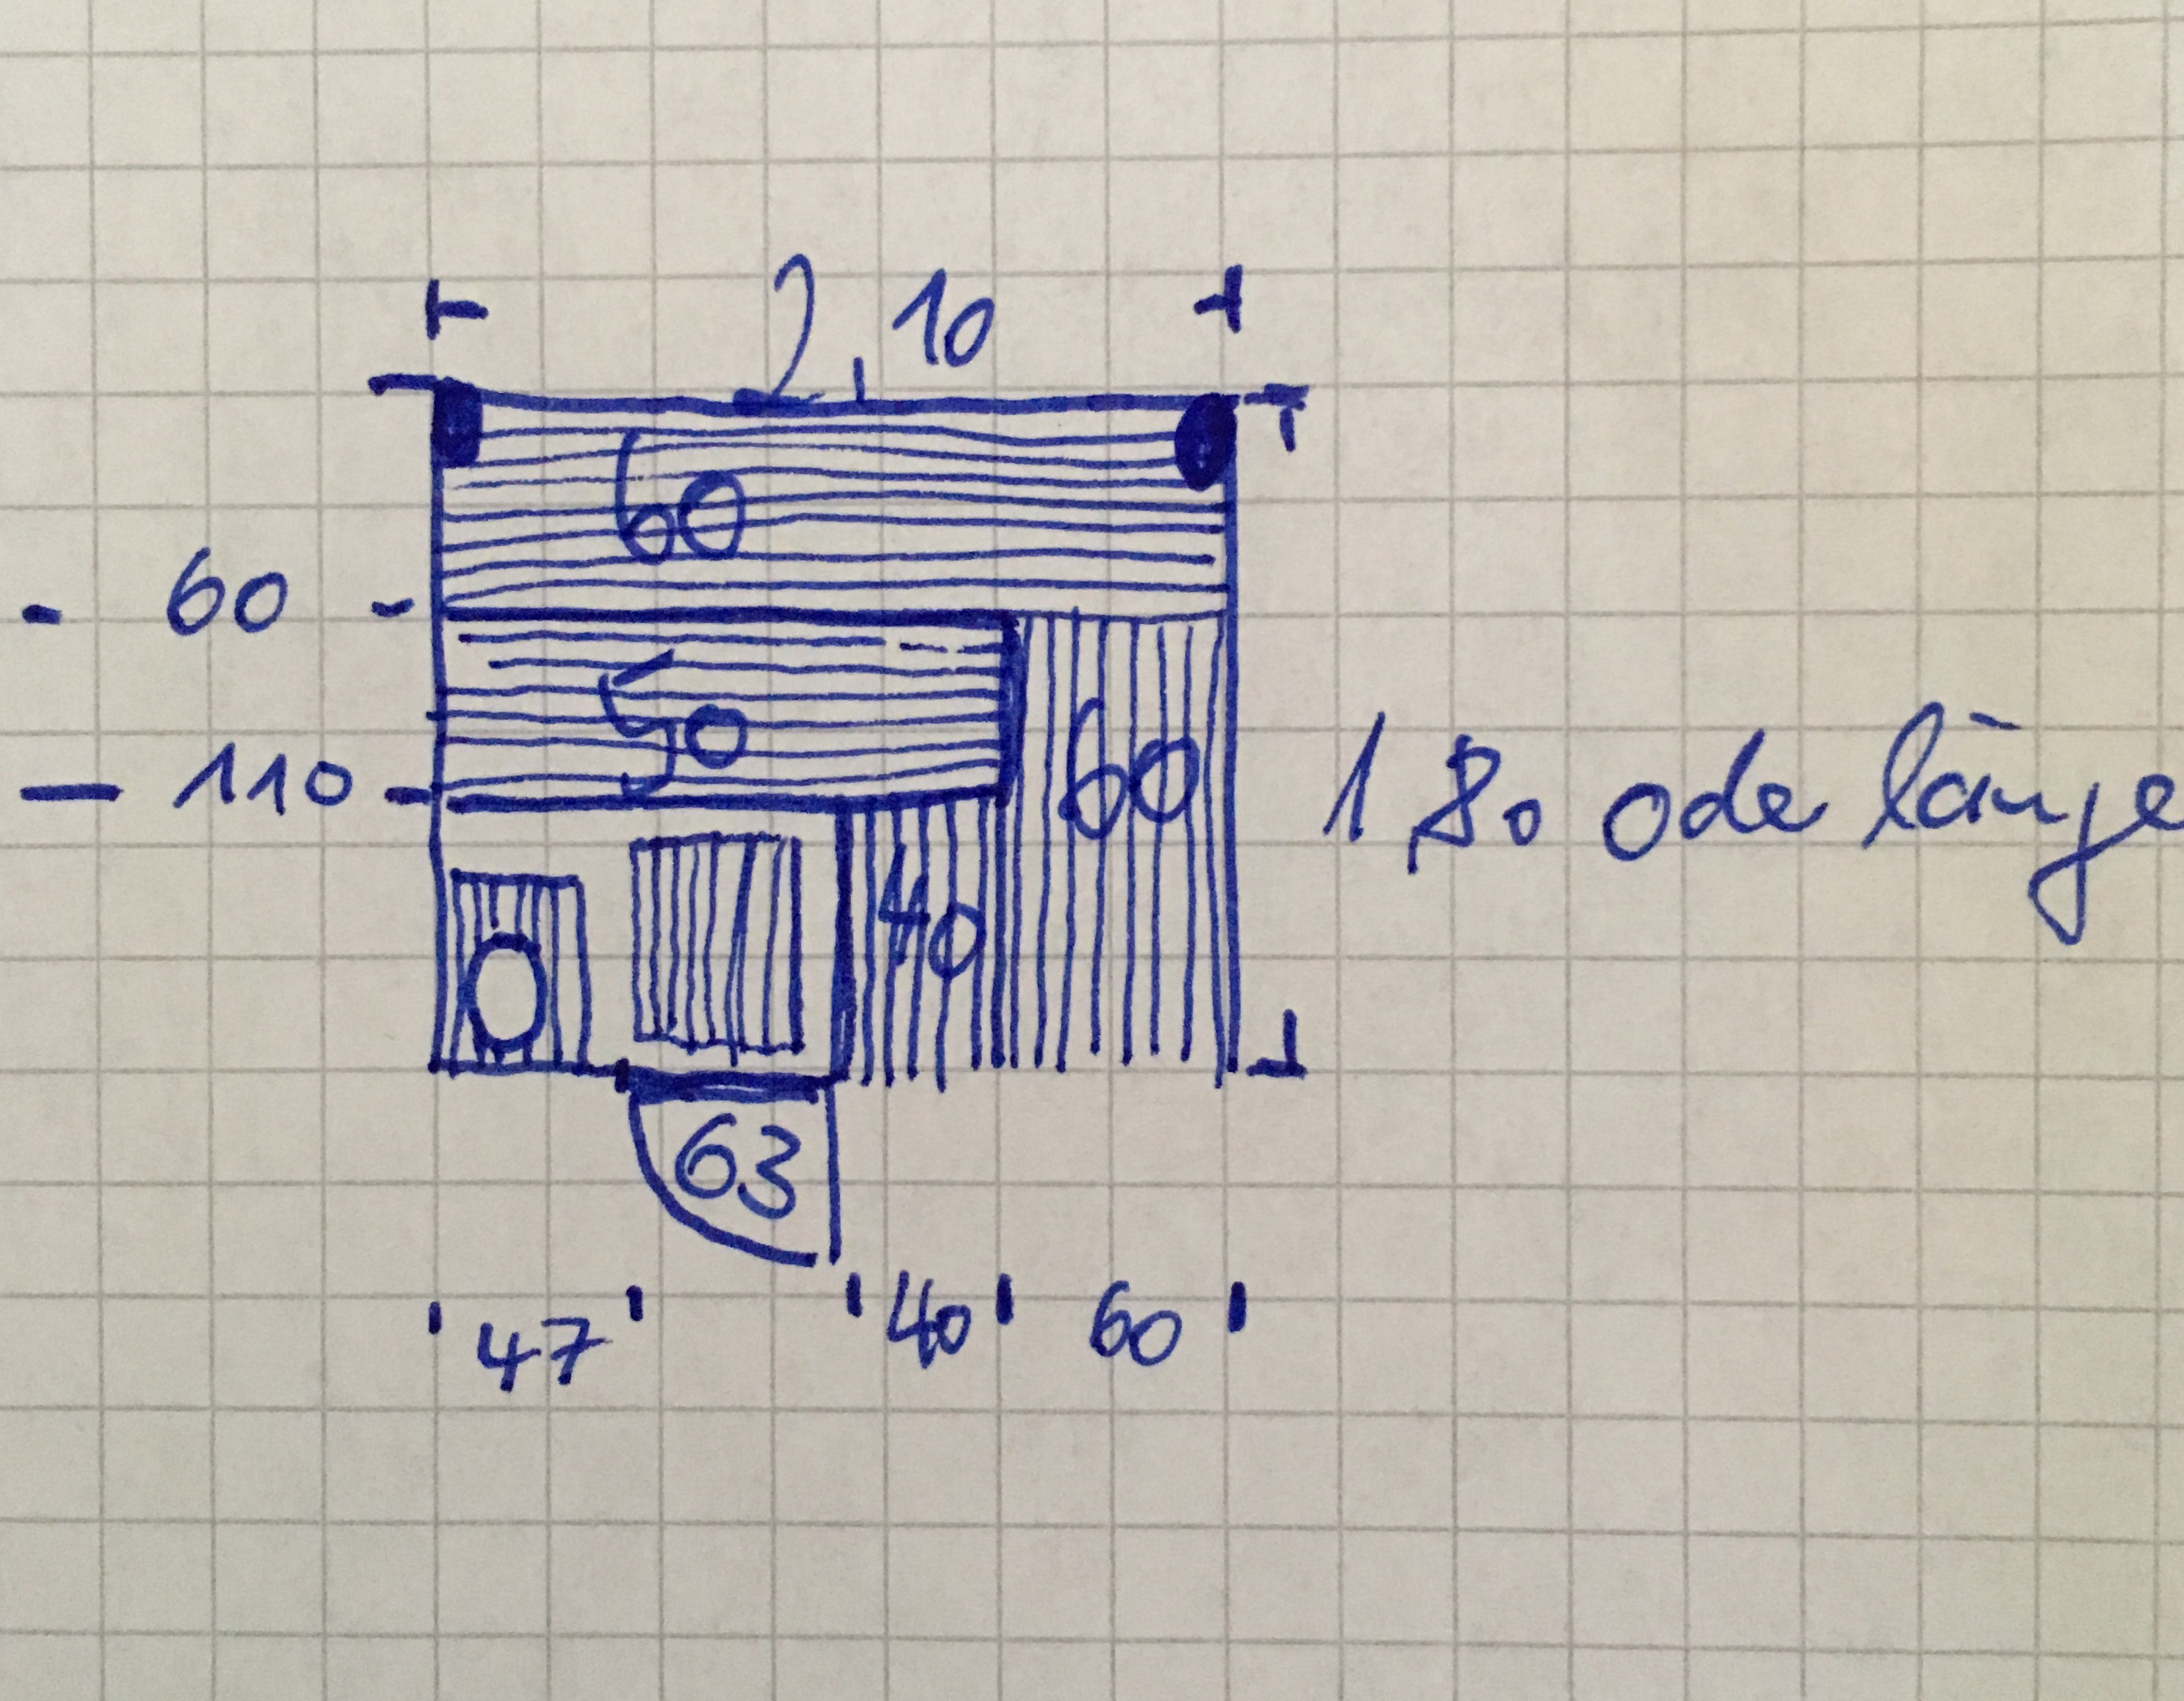 2,10
60
- 60 -
50
60
- 110 -
1,80 oder länge
40
63
47
40
60